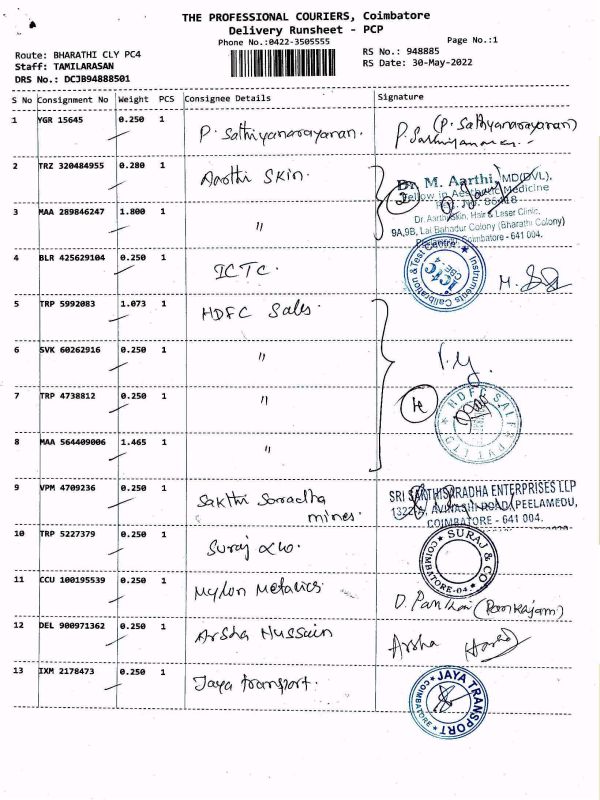 THE PROFESSIONAL COURIERS, Coimbatore
Delivery Runsheet - PCP
Phone No.:0422-3505555
Page No.:1
Route: BHARATHI CLY PC4
RS No.: 948885
Staff: TAMILARASAN
RS Date: 30-May-2022
DRS No.: DCJB94888501
S No Consignment No Weight PCS Consignee Details Signature
1 YGR 15645 0.250 1 P. Sathiyanarayanan. (P. Sathiyanarayanan)
2 TRZ 320484955 0.280 1 Aarthi Skin.
Dr. M. Aarthi, MD(DVL).,
Fellow in Aesthetic Medicine
Reg. No. 85418
2
3 MAA 289846247 1.800 1 "
Dr. Aarthi Skin, Hair & Laser Clinic,
9A,9B, Lal Bahadur Colony (Bharathi Colony)
Peelamedu, Coimbatore - 641 004.
4 BLR 425629104 0.250 1 ICTC.
Instruments Calibration & Test Centre
ICTC
CBE-4
5 TRP 5992083 1.073 1 HDFC Sales.
6 SVK 60262916 0.250 1 "
7 TRP 4738812 0.250 1 "
4
HDFC SALES PVT LTD
8 MAA 564409006 1.465 1 "
9 VPM 4709236 0.250 1 Sakthi Saradha
mines.
SRI SAKTHISARADHA ENTERPRISES LLP
AVINASHI ROAD, PEELAMEDU,
COIMBATORE - 641 004.
10 TRP 5227379 0.250 1 Suraj & co.
SURAJ & CO
COIMBATORE-04
11 CCU 100195539 0.250 1 Mylon Metalics D. Pankaj (Pankajam)
12 DEL 900971362 0.250 1 Arsha Hussain Arsha
13 IXM 2178473 0.250 1 Jaya transport.
JAYA TRANSPORT
COIMBATORE